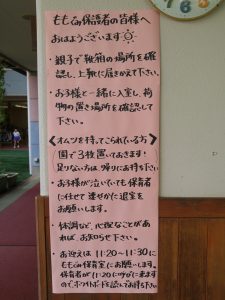 ももぐみ保護者の皆様へ
おはようございます
・親子で靴箱の場所を確
認し、上靴に履きかえて下さい。
・お子様と一緒に入室し、荷
物の置き場所を確認して
下さい。
〈オムツを持ってこられている方〉
園で3枚置いておきます!
足りない方は、帰りにお持ち下さい
・お子様が泣いていても保育者
に任せて速やかに退室を
お願いします。
・体調など、心配なことがあ
れば、お知らせ下さい。
・お迎えは 11:20〜11:30に
ももぐみ保育室にお願いします。
保育者が11:20に呼びに来ます
のでホワイトボードを読んでお待ち下さい